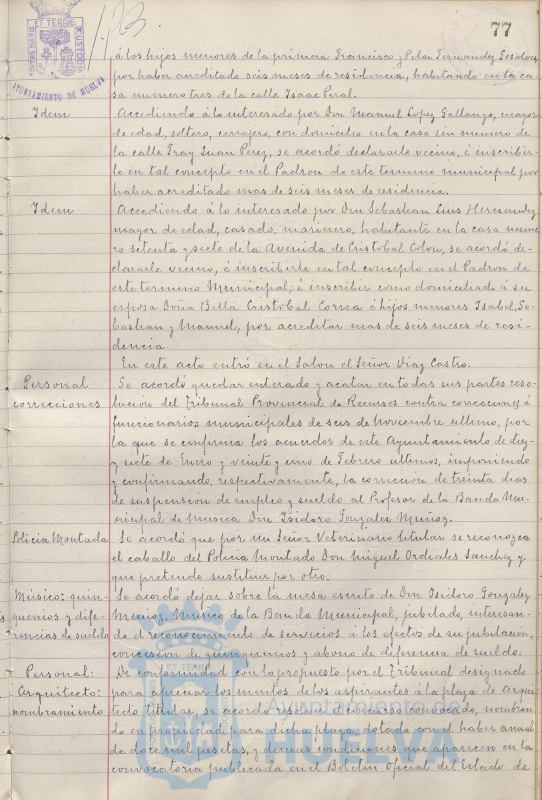 77
ET TERRÆ
CUSTODIA
AYUNTAMIENTO DE HUELVA
á los hijos menores de la primera Francisco y Pilar Fernandez
por haber acreditado seis meses de residencia, habitando en la ca-
sa numero tres de la calle Isaac Peral.
Idem
Accediendo á lo interesado por Don Manuel Lopez Gallango, mayor
de edad, soltero, cerrajero, con domicilio en la casa sin numero de
la calle Fray Juan Perez, se acordó declararle vecino, é inscribir-
le en tal concepto en el Padron de este termino municipal por
haber acreditado mas de seis meses de residencia.
Idem
Accediendo á lo interesado por Don Sebastian Luis Hernandez
mayor de edad, casado, marinero, habitante en la casa nume-
ro setenta y siete de la Avenida de Cristobal Colon, se acordó de-
clararle vecino, é inscribirle en tal concepto en el Padron de
este termino Municipal, é inscribir como domiciliada á su
esposa Doña Bella Cristobal Correa é hijos menores Isabel, Se-
bastian y Manuel, por acreditar mas de seis meses de resi-
dencia.
En este acto entró en el Salon el Señor Diaz Castro.
Personal
correcciones
Se acordó quedar enterado y acatar en todas sus partes reso-
lución del Tribunal Provincial de Recursos contra correcciones á
funcionarios municipales de seis de Noviembre ultimo, por
la que se confirma los acuerdos de este Ayuntamiento de diez
y siete de Enero y veinte y uno de Febrero ultimos, imponiendo
y confirmando, respectivamente, la correccion de treinta dias
de suspensión de empleo y sueldo al Profesor de la Banda Mu-
nicipal de musica Don Isidoro Gonzalez Muñoz.
Policia Montada
Se acordó que por un Señor Veterinario titular se reconozca
el caballo del Policia Montado Don Miguel Ordeales Sanchez y
que pretende sustituir por otro.
Músico: quin-
quenios y dife-
rencias de sueldo
Se acordó dejar sobre la mesa escrito de Don Isidoro Gonzalez
Muñoz, Musico de la Banda Municipal, jubilado, interesan-
do el reconocimiento de servicios á los efectos de su jubilacion,
concesion de quinquenios y abono de diferencia de sueldo.
Personal:
Arquitecto:
nombramiento
De conformidad con lo propuesto por el Tribunal designado
para apreciar los meritos de los aspirantes á la plaza de Arqui-
tecto titular, se acordo resolver el concurso convocado, nombran-
do en propiedad para dicha plaza, dotada con el haber anual
de doce mil pesetas, y demas condiciones que aparecen en la
convocatoria publicada en el Boletin Oficial del Estado de
ET TERRÆ
Ayuntamiento de
HUELVA